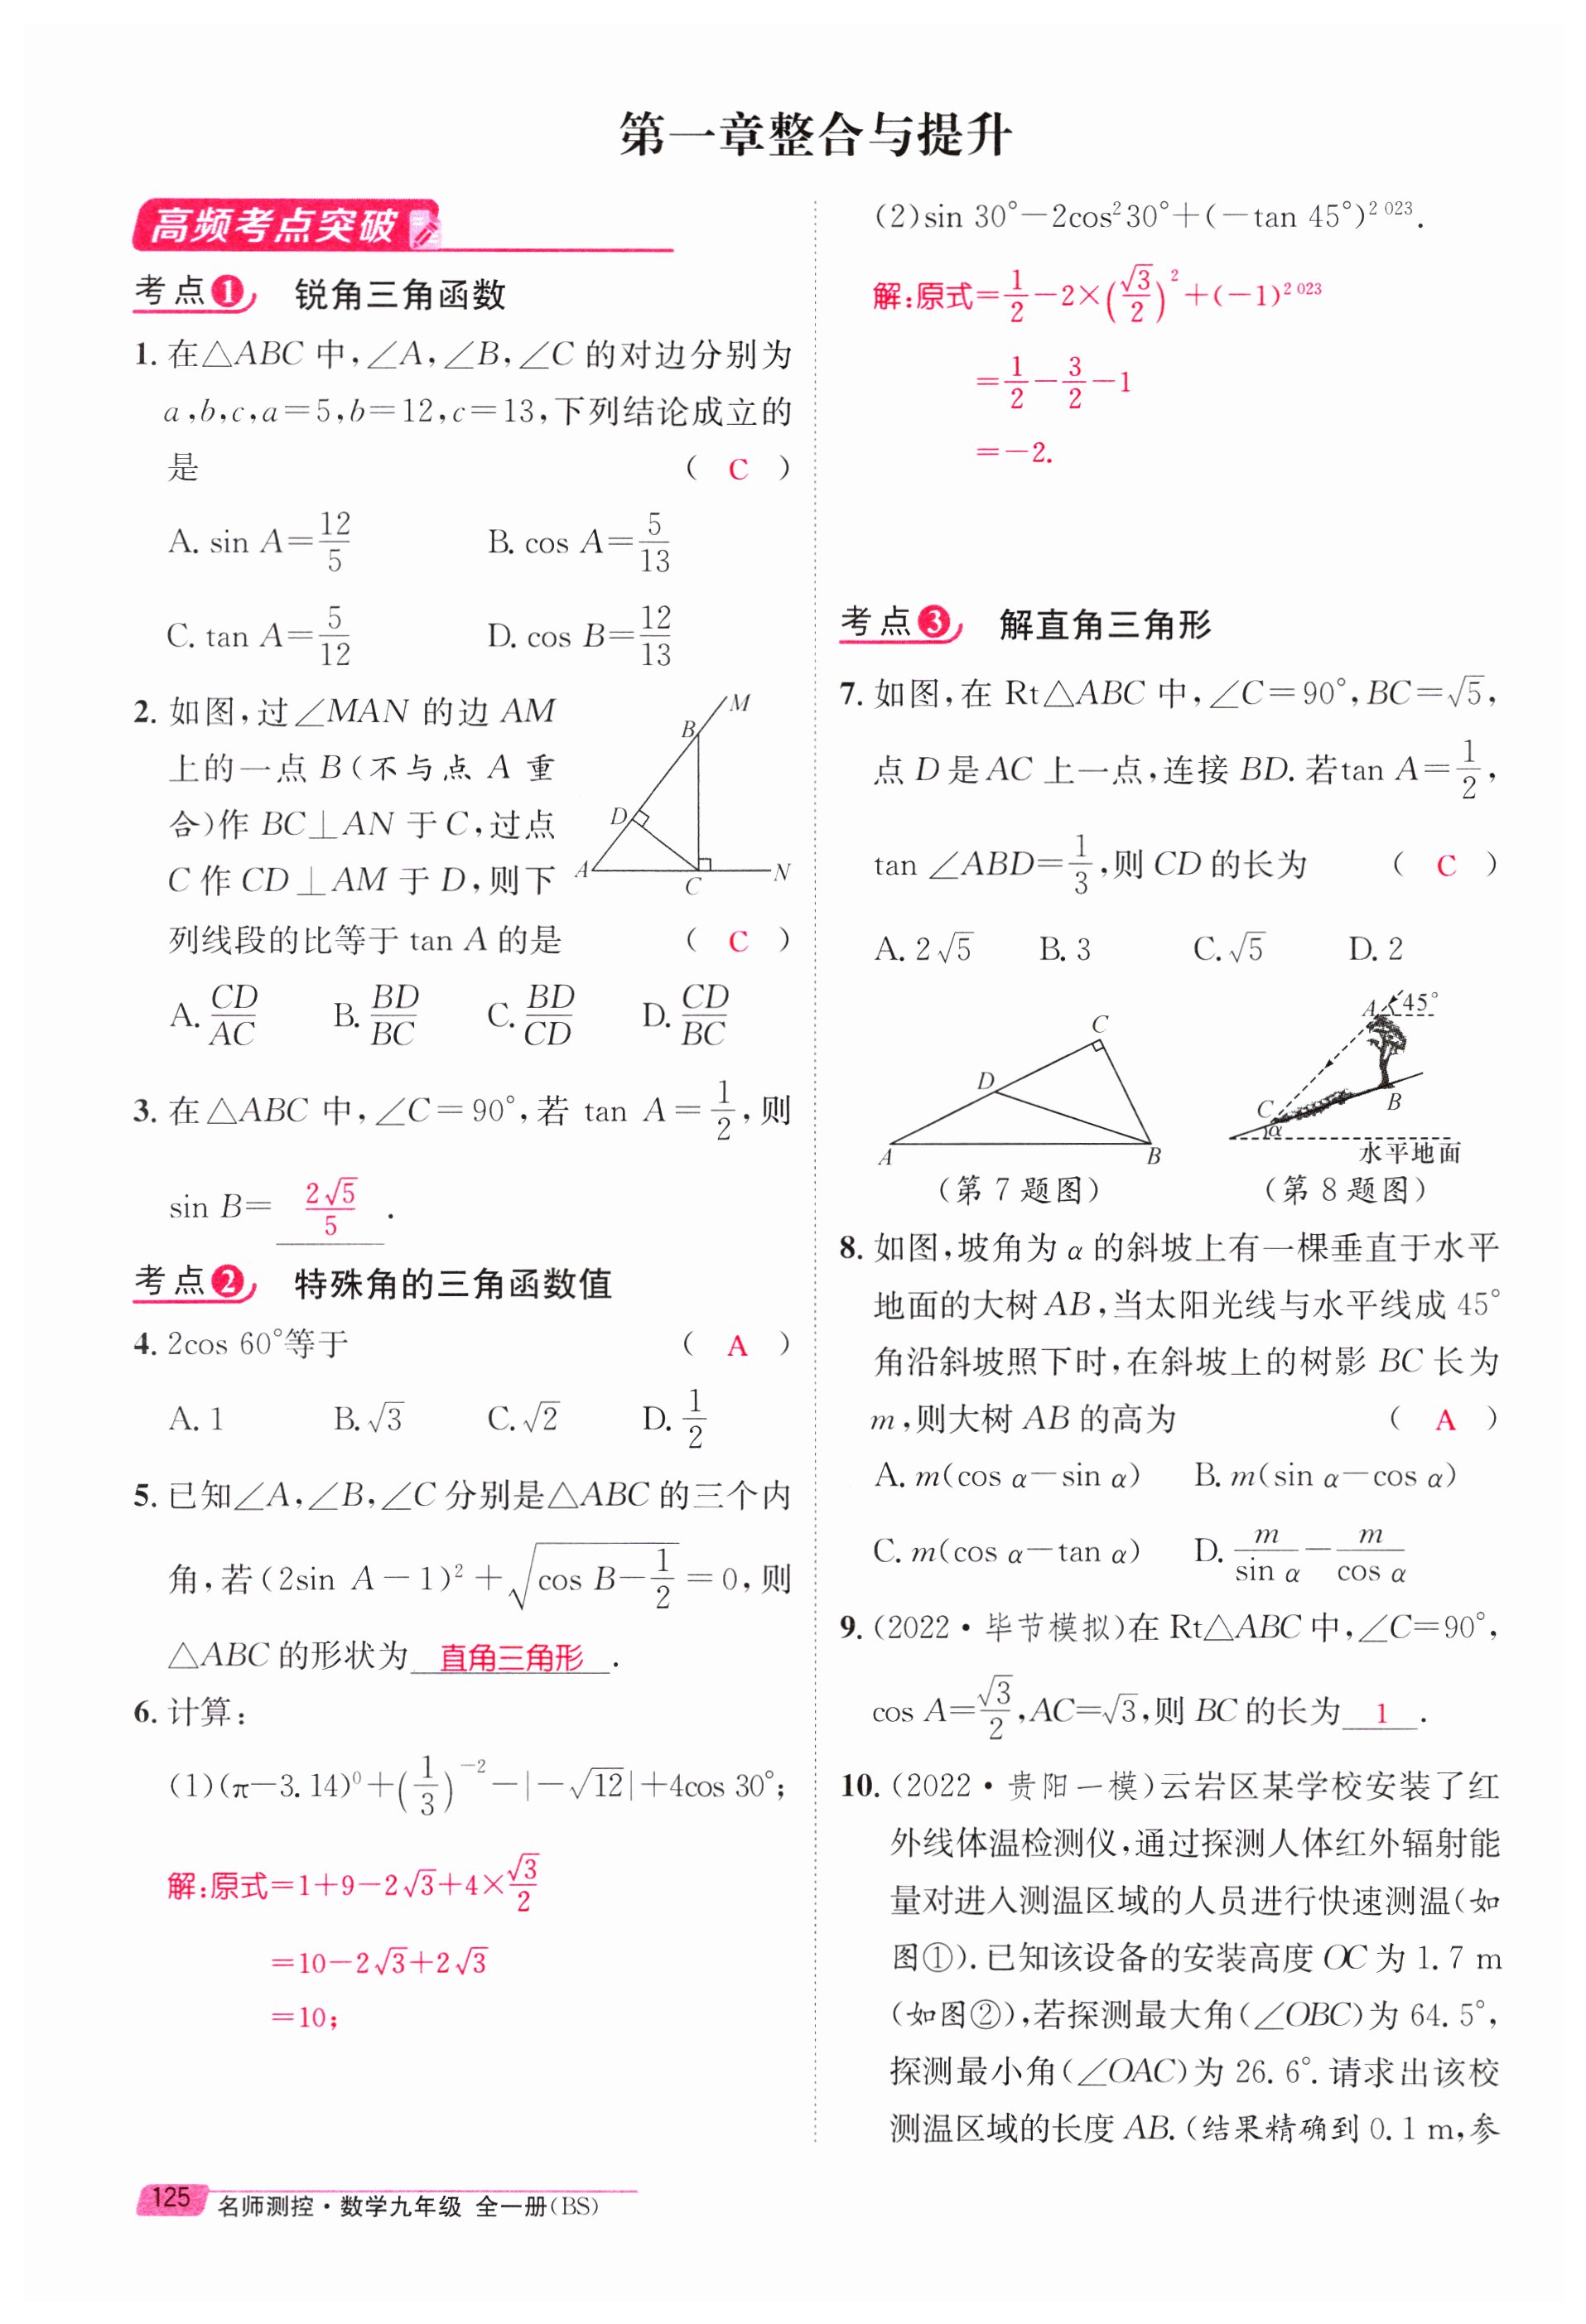 第一章整合与提升
高频考点突破
考点1 锐角三角函数
1. 在△ABC 中,∠A,∠B,∠C 的对边分别为
a,b,c,a=5,b=12,c=13,下列结论成立的
是 ( C )
A. sin A=12/5 B. cos A=5/13
C. tan A=5/12 D. cos B=12/13
2. 如图,过∠MAN 的边 AM
上的一点 B(不与点 A 重
合)作 BC⊥AN 于 C,过点
C 作 CD⊥AM 于 D,则下
列线段的比等于 tan A 的是 ( C )
M
B
D
A
C
N
A. CD/AC B. BD/BC C. BD/CD D. CD/BC
3. 在△ABC 中,∠C=90°,若 tan A=1/2,则
sin B= 2√5/5 .
考点2 特殊角的三角函数值
4. 2cos 60°等于 ( A )
A. 1 B. √3 C. √2 D. 1/2
5. 已知∠A,∠B,∠C 分别是△ABC 的三个内
角,若(2sin A-1)²+√(cos B-1/2)=0,则
△ABC 的形状为 直角三角形 .
6. 计算:
(1)(π-3.14)⁰+(1/3)⁻²-|-√12|+4cos 30°;
解:原式=1+9-2√3+4×√3/2
=10-2√3+2√3
=10;
(2)sin 30°-2cos²30°+(-tan 45°)²⁰²³.
解:原式=1/2-2×(√3/2)²+(-1)²⁰²³
=1/2-3/2-1
=-2.
考点3 解直角三角形
7. 如图,在 Rt△ABC 中,∠C=90°,BC=√5,
点 D 是 AC 上一点,连接 BD. 若tan A=1/2,
tan ∠ABD=1/3,则 CD 的长为 ( C )
A. 2√5 B. 3 C. √5 D. 2
C
D
A
B
(第 7 题图)
A 45°
C
B
α
水平地面
(第 8 题图)
8. 如图,坡角为 α 的斜坡上有一棵垂直于水平
地面的大树 AB,当太阳光线与水平线成 45°
角沿斜坡照下时,在斜坡上的树影 BC 长为
m,则大树 AB 的高为 ( A )
A. m(cos α-sin α) B. m(sin α-cos α)
C. m(cos α-tan α) D. m/sin α-m/cos α
9. (2022·毕节模拟)在 Rt△ABC 中,∠C=90°,
cos A=√3/2,AC=√3,则 BC 的长为 1 .
10. (2022·贵阳一模)云岩区某学校安装了红
外线体温检测仪,通过探测人体红外辐射能
量对进入测温区域的人员进行快速测温(如
图①). 已知该设备的安装高度 OC 为 1.7 m
(如图②),若探测最大角(∠OBC)为 64.5°,
探测最小角(∠OAC)为 26.6°. 请求出该校
测温区域的长度 AB. (结果精确到 0.1 m,参
125 名师测控·数学九年级 全一册(BS)